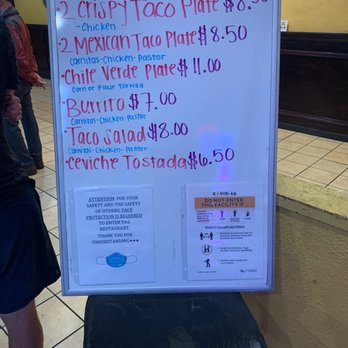 2 Crispy Taco Plate $8.50
-Chicken
2 Mexican Taco Plate $8.50
Carnitas-Chicken-Pastor
Chile Verde Plate $11.00
Corn or Flour Tortilla
Burrito $7.00
Carnitas-Chicken-Pastor
Taco Salad $8.00
Carnitas-Chicken-Pastor
Ceviche Tostada $6.50
ATTENTION: FOR YOUR
SAFETY AND THE SAFETY
OF OTHERS, FACE
PROTECTION IS REQUIRED
TO ENTER This
RESTAURANT
THANK YOU FOR
UNDERSTANDING
COVID-19
DO NOT ENTER
THIS FACILITY IF